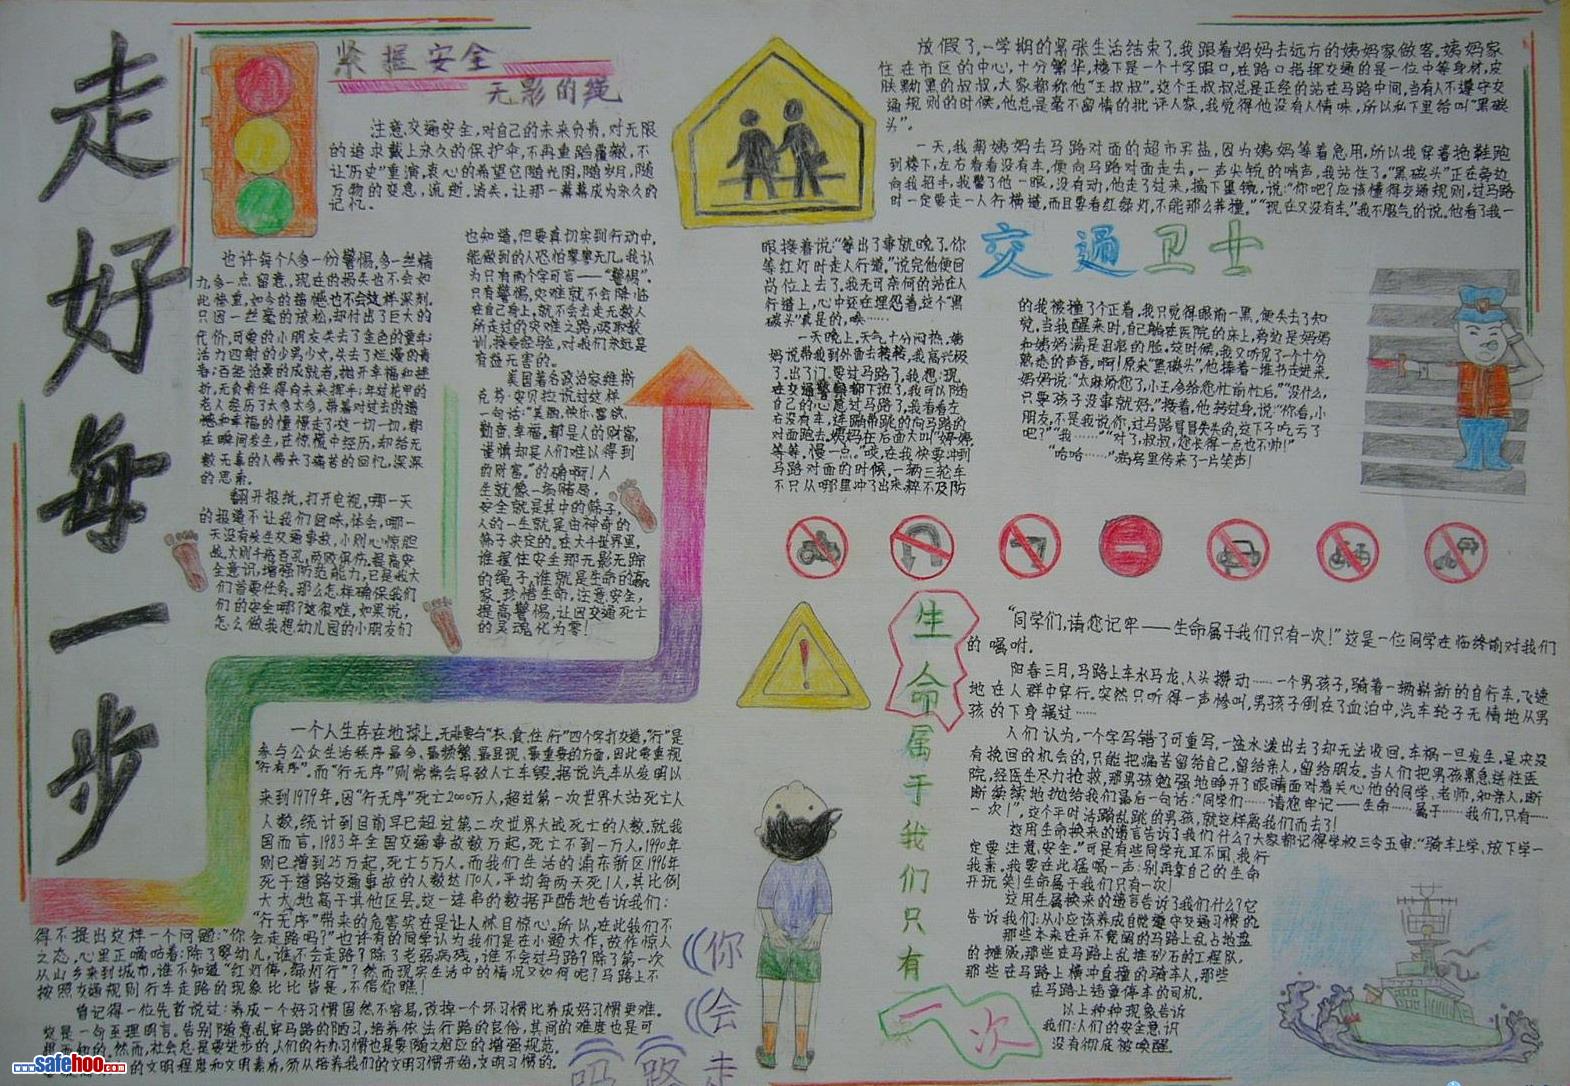 走好每一步
紧握安全
无影的绳
注意交通安全,对自己的未来负责,对无限
的追求戴上永久的保护伞,不再重蹈覆辙,不
让历史"重演,衷心的希望它随光阴,随岁月,随
万物的变息,流逝.消失,让那一幕幕成为永久的
记忆.
也许每个人多一份警惕,多一丝精
力,多一点留意,现在的损失也不会如
此惨重,如今的遗憾也不会这样深刻.
只因一丝毫的放松,却付出了巨大的
代价.可爱的小朋友失去了金色的童年;
活力四射的少男少女,失去了烂漫的青
春;百经沧桑的成就者,抛开幸福和挫
折,无负责任得向未来挥手;年过花甲的
老人经历了太多太多,带着对过去的遗
憾和幸福的憧憬走了.这一切一切,都
在瞬间发生,在惊慌中经历,却给无
数无辜的人带来了痛苦的回忆,深深
的思索.
翻开报纸,打开电视,哪一天
的报道不让我们回味,体会,哪一
天没有发生交通事故,小则心惊胆
战,大则千疮百孔,两败俱伤.提高安
全意识,增强防范能力,它是我大
们首要任务.那么怎样确保我们
们的安全哪?这很难,如果说,
怎么做我想幼儿园的小朋友们
也知道,但要真切实到行动中,
能做到的人恐怕寥寥无几,我认
为只有两个字可言——"警惕".
只有警惕,灾难就不会降临
在自己身上,就不会去走无数人
所走过的灾难之路,吸取教
训,接受经验,对我们来远是
有益无害的.
美国著名政治家维斯
克芬·安贝拉说过这样
一句话:"美丽,快乐,富欲,
勤奋,幸福,都是人的财富,
谨慎却是人们难以得到
的财富."的确啊!人
生就像一场赌局,
安全就是其中的筛子,
人的一生就是由神奇的
筛子决定的.在大千世界里,
谁握住安全那无影无踪
的绳子,谁就是生命的赢
家.珍惜生命,注意安全,
提高警惕,让因交通死亡
的灵魂化为零!
放假了,一学期的紧张生活结束了,我跟着妈妈去远方的姨妈家做客.姨妈家
住在市区的中心,十分繁华,楼下是一个十字路口,在路口指挥交通的是一位中等身材,皮
肤黝黑的叔叔,大家都称他"王叔叔".这个王叔叔总是正经的站在马路中间,当有人不遵守交
通规则的时候,他总是毫不留情的批评人家,我觉得他没有人情味,所以私下里给叫"黑碳
头".
一天,我期姨妈去马路对面的超市买盐,因为姨妈等着急用,所以我穿着拖鞋跑
到楼下,左右看看没有车,便向马路对面走去,一声尖锐的哨声,我站住了."黑碳头"正在旁边
向我招手,我瞥了他一眼,没有动,他走了过来,摘下墨镜,说:"你吧?应该懂得交通规则,过马路
时一定要走一人行横道,而且要看红绿灯,不能那么莽撞.""现在又没有车."我不服气的说.他看了我一
交通卫士
眼接着说:"等出了事就晚了.你
等红灯时走人行道."说完他便回
岗位上去了.我无可奈何的站在人
行道上,心中还在埋怨着这个"黑
碳头"真是的,唉……
一天晚上,天气十分闷热,姨
妈说带我到外面去转转,我高兴极
了.出了门,要过马路了,我想:现
在交通警察都下班了,我可以随
自己的心愿过马路了,我看看左
右没有车,连蹦带跳的向马路的
对面跑去,姨妈在后面大叫"婷婷
等等,慢一点."咬,在我快要冲到
马路对面的时候,一辆三轮车
不只从哪里冲了出来,粹不及防
的我被撞了个正着,我只觉得眼前一黑,便失去了知
觉,当我醒来时,自己躺在医院的床上,旁边是妈妈
和姨妈满是泪痕的脸.这时候,我又听见了一个十分
熟悉的声音,啊!原来"黑碳头",他捧着一堆书走进来,
妈妈说:"太麻烦您了,小王,多给您忙前忙后.""没什么,
只要孩子没事就好."接着,他转过身,说:"你看,小
朋友,不是我说你,过马路冒冒失失的,这下子吃亏了
吧?""我……""对了,叔叔,您长得一点也不帅!"
"哈哈……"病房里传来了一片笑声!
生命属于我们只有一次
"同学们,请您记牢——生命属于我们只有一次!"这是一位同学在临终前对我们
的嘱咐.
阳春三月,马路上车水马龙,人头攒动……一个男孩子,骑着一辆崭新的自行车,飞速
地在人群中穿行.突然只听得一声惨叫,男孩子倒在了血泊中,汽车轮子无情地从男
孩的下身辗过……
人们认为,一个字写错了可重写,一盆水泼出去了却无法收回.车祸一旦发生,是决没
有挽回的机会的,只能把痛苦留给自己,留给亲人,留给朋友.当人们把男孩紧急送往医
院,经医生尽力抢救,那男孩勉强地睁开了眼睛面对着关心他的同学、老师,和亲人,断
断续续地抛给我们最后一句话:"同学们……请您牢记——生命……属于……我们,只有——
一次!",这个平时活蹦乱跳的男孩,就这样离我们而去了!
这用生命换来的遗言告诉了我们什么?大家都记得学校三令五审:"骑车上学、放下学一
定要注意安全."可是有些同学充耳不闻,我行
我素.我要在此猛喝一声:别再拿自己的生命
开玩笑!生命属于我们只有一次!
这用生属换来的遗言告诉了我们什么?它
告诉我们:从小应该养成自觉遵守交通习惯的,
那些本来在并不宽阔的马路上乱占地盘
的摊贩,那些在马路上乱堆砂石的工程队,
那些在马路上横冲直撞的骑车人,那些
在马路上违章停车的司机.
以上种种现象告诉
我们:人们的安全意识
没有彻底被唤醒.
一个人生存在地球上,无非要与"衣,食,住,行"四个字打交道,"行"是
参与公众生活秩序最多、最频繁,最显现、最重要的方面,因此需重视
"行有序".而"行无序"则常常会导致人亡车毁.据说汽车从发明以
来到1979年,因"行无序"死亡2000万人,超过第一次世界大站死亡人
人数,统计到目前早已超过第二次世界大战死亡的人数.就我
国而言,1983年全国交通事故数万起,死亡不到一万人,1990年
则已增到25万起,死亡5万人.而我们生活的浦东新区1996年
死于道路交通事故的人数达170人,平均每两天死1人,其比例
大大地高于其他区县.这一连串的数据严酷地告诉我们:
"行无序"带来的危害实在是让人怵目惊心.所以,在此我们不
得不提出这样一个问题:"你会走路吗?"也许有的同学认为我们是在小题大作,故作惊人
之态,心里正嘀咕着:除了婴幼儿,谁不会走路?除了老弱病残,谁不会过马路?除了第一次
从山乡来到城市,谁不知道"红灯停,绿灯行"?然而现实生活中的情况又如何呢?马路上不
按照交通规则行车走路的现象比比皆是,不信你瞧!
曾记得一位先哲说过:养成一个好习惯固然不容易,改掉一个坏习惯比养成好习惯更难.
这是一句至理明言.告别随意乱穿马路的陋习,培养依法行路的良俗,其间的难度也是可
想而知的.然而,社会总是要进步的,人们的行为习惯也是要随之相应的增强规范.
的文明程度和文明素质,须从培养我们的文明习惯开始,文明习惯的.
你会走路吗
www.safehoo.com